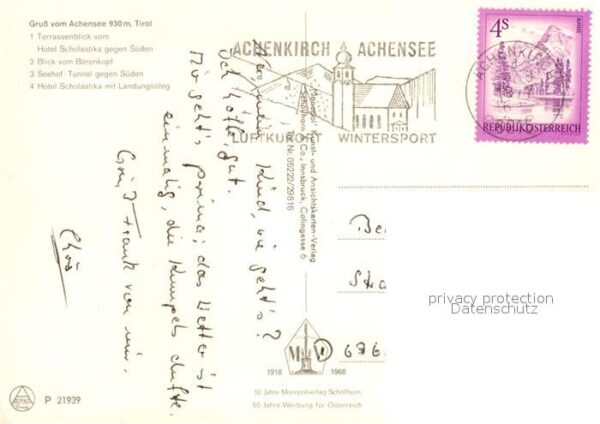 Gruß vom Achensee 930 m, Tirol
1 Terrassenblick vom
Hotel Scholastika gegen Süden
2 Blick vom Bärenkopf
3 Seehof-Tunnel gegen Süden
4 Hotel Scholastika mit Landungssteg
ACHENKIRCH ACHENSEE
LUFTKURORT WINTERSPORT
ACHENKIRCH
4S
REPUBLIK ÖSTERREICH
mein Kind, wie geht's?
Ich hoffe, gut.
Mir geht's prima; das Wetter ist
einmalig, die Kumpels dufte.
Frank von mir.
"Monopol" Kunst- und Ansichtskarten-Verlag
Schöllhorn & Co., Innsbruck, Colingasse 6
Tel. Nr. 05222/29816
Be
Stra
D 676
privacy protection
Datenschutz
1918 MV 1968
50 Jahre Monopolverlag Schöllhorn
50 Jahre Werbung für Österreich
P 21939